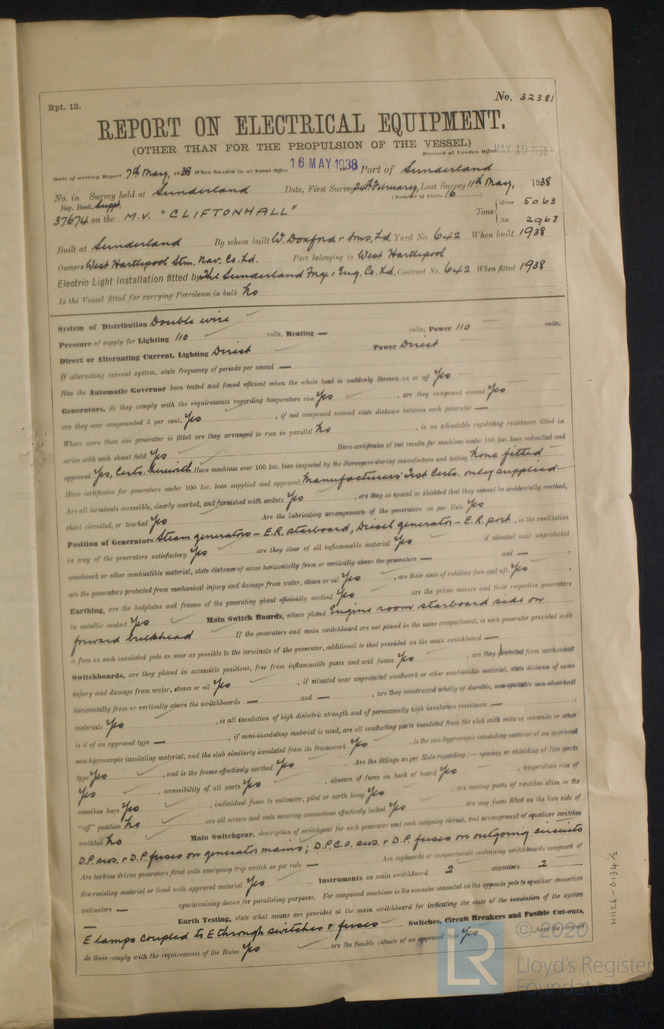 Rpt. 13.
No. 32381
REPORT ON ELECTRICAL EQUIPMENT.
(OTHER THAN FOR THE PROPULSION OF THE VESSEL)
Received at London Office
Date of writing Report 7th May, 1938 When handed in at Local Office 16 MAY 1938 Port of Sunderland
No. in Survey held at Sunderland Date, First Survey 24th February, Last Survey 11th May, 1938
Reg. Book. Suppt. (Number of Visits 16
37674 on the M.V. "CLIFTONHALL" Tons Gross 5063
Net 2963
Built at Sunderland By whom built W. Doxford & Sons, Ld. Yard No. 642 When built 1938
Owners West Hartlepool Stm. Nav. Co. Ld. Port belonging to West Hartlepool
Electric Light Installation fitted by The Sunderland Forge & Eng. Co. Ld. Contract No. 642 When fitted 1938
Is the Vessel fitted for carrying Petroleum in bulk No
System of Distribution Double wire
Pressure of supply for Lighting 110 volts, Heating — volts, Power 110 volts,
Direct or Alternating Current, Lighting Direct Power Direct
If alternating current system, state frequency of periods per second —
Has the Automatic Governor been tested and found efficient when the whole load is suddenly thrown on or off Yes
Generators, do they comply with the requirements regarding temperature rise Yes , are they compound wound Yes
are they over compounded 5 per cent. Yes , if not compound wound state distance between each generator —
Where more than one generator is fitted are they arranged to run in parallel No , is an adjustable regulating resistance fitted in
series with each shunt field Yes Have certificates of test results for machines under 100 kw. been submitted and
approved Yes, Certs. herewith Have machines over 100 kw. been inspected by the Surveyors during manufacture and testing None fitted
Have certificates for generators under 100 kw. been supplied and approved Manufacturers' Test Certs. only supplied
Are all terminals accessible, clearly marked, and furnished with sockets Yes , are they so spaced or shielded that they cannot be accidentally earthed,
short circuited, or touched Yes Are the lubricating arrangements of the generators as per Rule Yes
Position of Generators Steam generators – E.R. starboard, Diesel generator – E.R. port , is the ventilation
in way of the generators satisfactory Yes are they clear of all inflammable material Yes if situated near unprotected
woodwork or other combustible material, state distance of same horizontally from or vertically above the generators — and —
are the generators protected from mechanical injury and damage from water, steam or oil Yes , are their axes of rotation fore and aft Yes
Earthing, are the bedplates and frames of the generating plant efficiently earthed Yes are the prime movers and their respective generators
in metallic contact Yes Main Switch Boards, where placed Engine room starboard side on
forward bulkhead If the generators and main switchboard are not placed in the same compartment, is each generator provided with
a fuse on each insulated pole as near as possible to the terminals of the generator, additional to that provided on the main switchboard —
Switchboards, are they placed in accessible positions, free from inflammable gases and acid fumes Yes , are they protected from mechanical
injury and damage from water, steam or oil Yes , if situated near unprotected woodwork or other combustible material, state distance of same
horizontally from or vertically above the switchboards — and — , are they constructed wholly of durable, non-ignitable non-absorbent
materials Yes , is all insulation of high dielectric strength and of permanently high insulation resistance —
is it of an approved type — , if semi-insulating material is used, are all conducting parts insulated from the slab with mica or micanite or other
non-hygroscopic insulating material, and the slab similarly insulated from its framework Yes , is the non-hygroscopic insulating material of an approved
type Yes , and is the frame effectively earthed Yes Are the fittings as per Rule regarding:— spacing or shielding of live parts
Yes , accessibility of all parts Yes , absence of fuses on back of board Yes , temperature rise of
omnibus bars Yes , individual fuses to voltmeter, pilot or earth lamp Yes , are moving parts of switches alive in the
"off" position No are all screws and nuts securing connections effectively locked Yes are any fuses fitted on the live side of
switches No Main Switchgear, description of switchgear for each generator and each outgoing circuit, and arrangement of equaliser switches
D.P. sws. & D.P. fuses on generator mains; D.P.C.O. sws. & D.P. fuses on outgoing circuits
Are turbine driven generators fitted with emergency trip switch as per rule — Are cupboards or compartments containing switchboards composed of
fire-resisting material or lined with approved material Yes Instruments on main switchboard 2 ammeters 2
voltmeters — synchronising device for paralleling purposes. For compound machines is the ammeter connected on the opposite pole to equaliser connection
— Earth Testing, state what means are provided at the main switchboard for indicating the state of the insulation of the system
E lamps coupled to E through switches & fuses Switches, Circuit Breakers and Fusible Cut-outs,
do these comply with the requirements of the Rules Yes are the fusible cutouts of an approved type Yes
W1126-0134 1/2
© 2020
LR
Lloyd's Register
Foundation